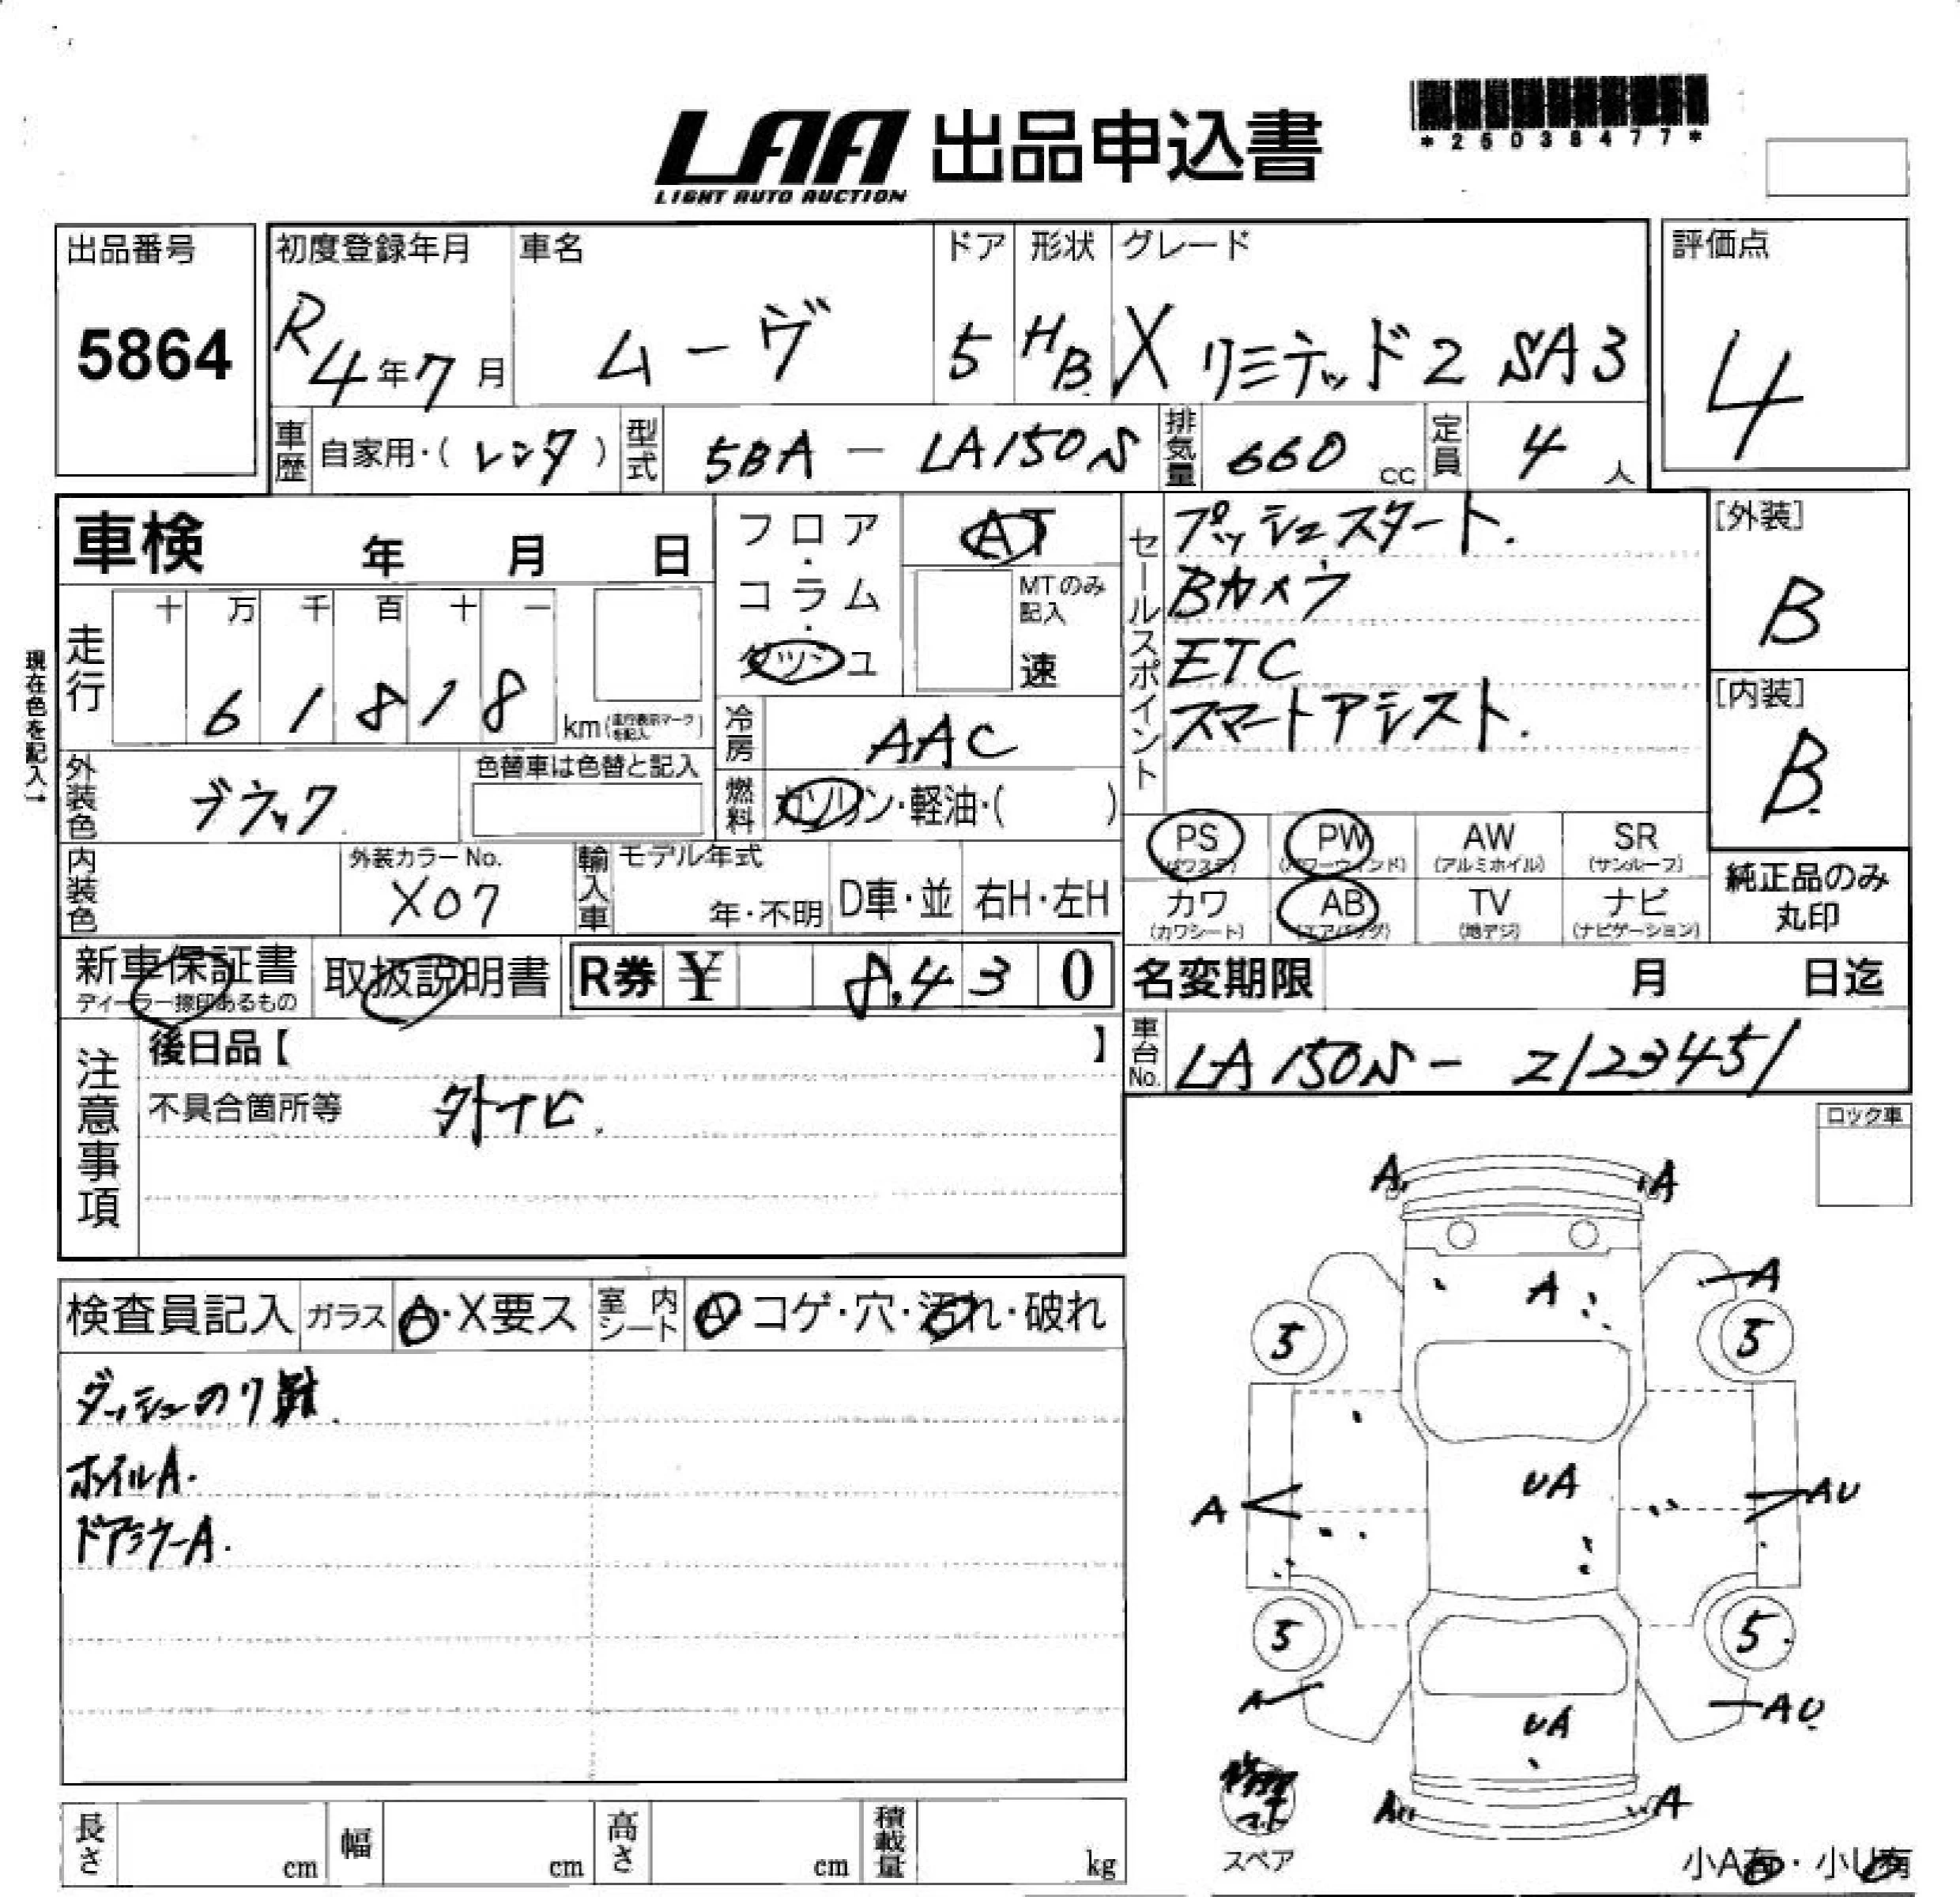 LAA 出品申込書
LIGHT AUTO AUCTION
*25038477*
出品番号 初度登録年月 車名 ドア 形状 グレード 評価点
5864 R4年7月 ムーヴ 5 HB X リミテッド2 SA3 4
車歴 自家用・(レンタ) 型式 5BA－LA150S 排気量 660 cc 定員 4 人
車検 年 月 日
フロア・コラム・ダッシュ
AT
MTのみ記入
速
セールスポイント
プッシュスタート.
Bカメラ
ETC
スマートアシスト.
[外装]
B
[内装]
B
現在色を記入→
走行 十 万 千 百 十 一
6 1 8 1 8 km(走行表示マークを記入)
冷房 AAC
外装色 ブラック 色替車は色替と記入
燃料 ガソリン・軽油・( )
PS (パワステ) PW (パワーウィンド) AW (アルミホイル) SR (サンルーフ)
カワ (カワシート) AB (エアバッグ) TV (地デジ) ナビ (ナビゲーション)
純正品のみ
丸印
内装色 外装カラーNo. X07 輸入車 モデル年式 年・不明 D車・並 右H・左H
新車保証書 ディーラー捺印あるもの 取扱説明書 R券 ¥ 8,430
名変期限 月 日迄
車台No. LA150S－Z123451
注意事項
後日品【 】
不具合箇所等 外ナビ.
ロック車
検査員記入 ガラス A・X要ス 室内シート A コゲ・穴・汚れ・破れ
ダッシュのり跡.
ホイルA.
ドアミラーA.
A A
A A
5 5
A UA AU
5 5
A UA AU
A A
スペア
小A有・小U有
長さ cm 幅 cm 高さ cm 積載量 kg